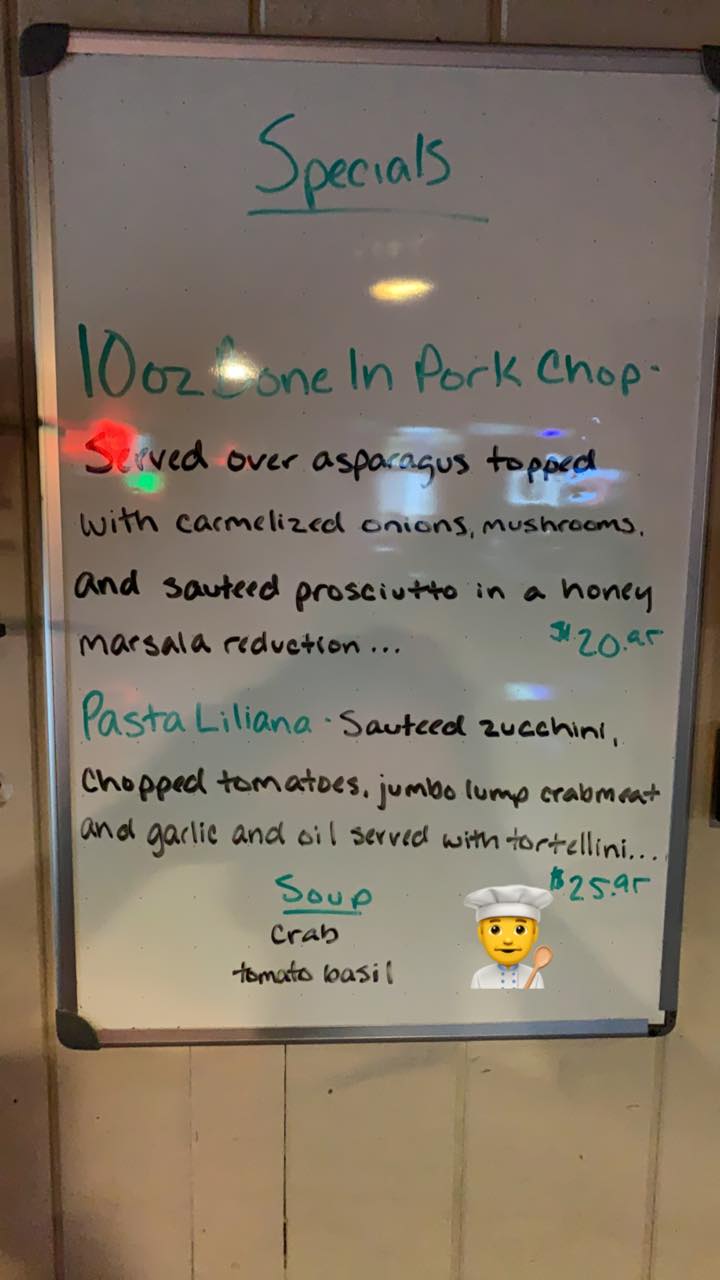 Specials
10oz Bone In Pork Chop-
Served over asparagus topped
with carmelized onions, mushrooms,
and sauteed prosciutto in a honey
marsala reduction...
$20.95
Pasta Liliana - Sauteed zucchini,
Chopped tomatoes, jumbo lump crabmeat
and garlic and oil served with tortellini...
$25.95
Soup
Crab
tomato basil